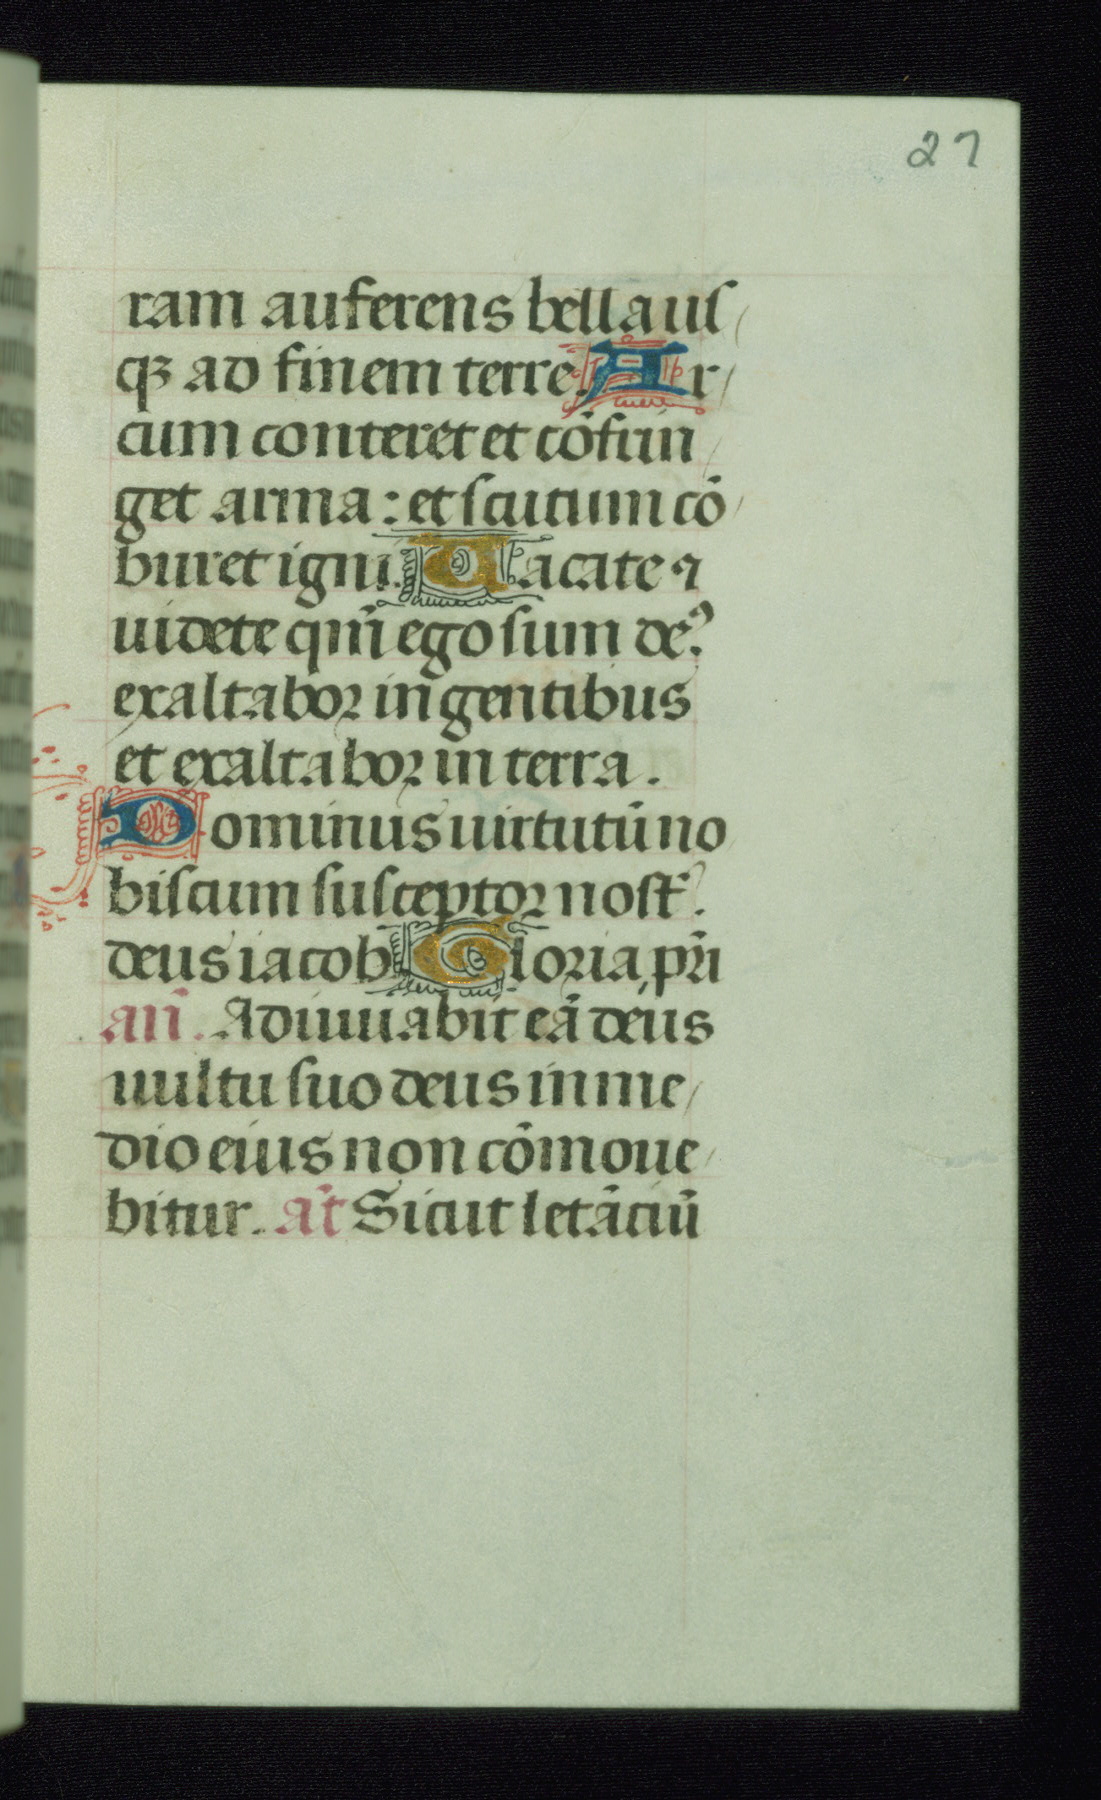 27
ram auferens bella uſ
qꝫ ad finem terre. Ar
cum conteret et cōfrin
get arma: et ſcutum cō
buret igni. Uacate ⁊
uidete qm̄ ego ſum de᷒.
exaltabor in gentibus
et exaltabor in terra.
Dominus uirtutū no
biſcum ſuſceptor noſt᷒.
deus iacob. Gloria pr̄i
an̄. Adiuuabit eā deus
uultu ſuo deus in me
dio eius non cōmoue
bitur. an̄t Sicut letāciū